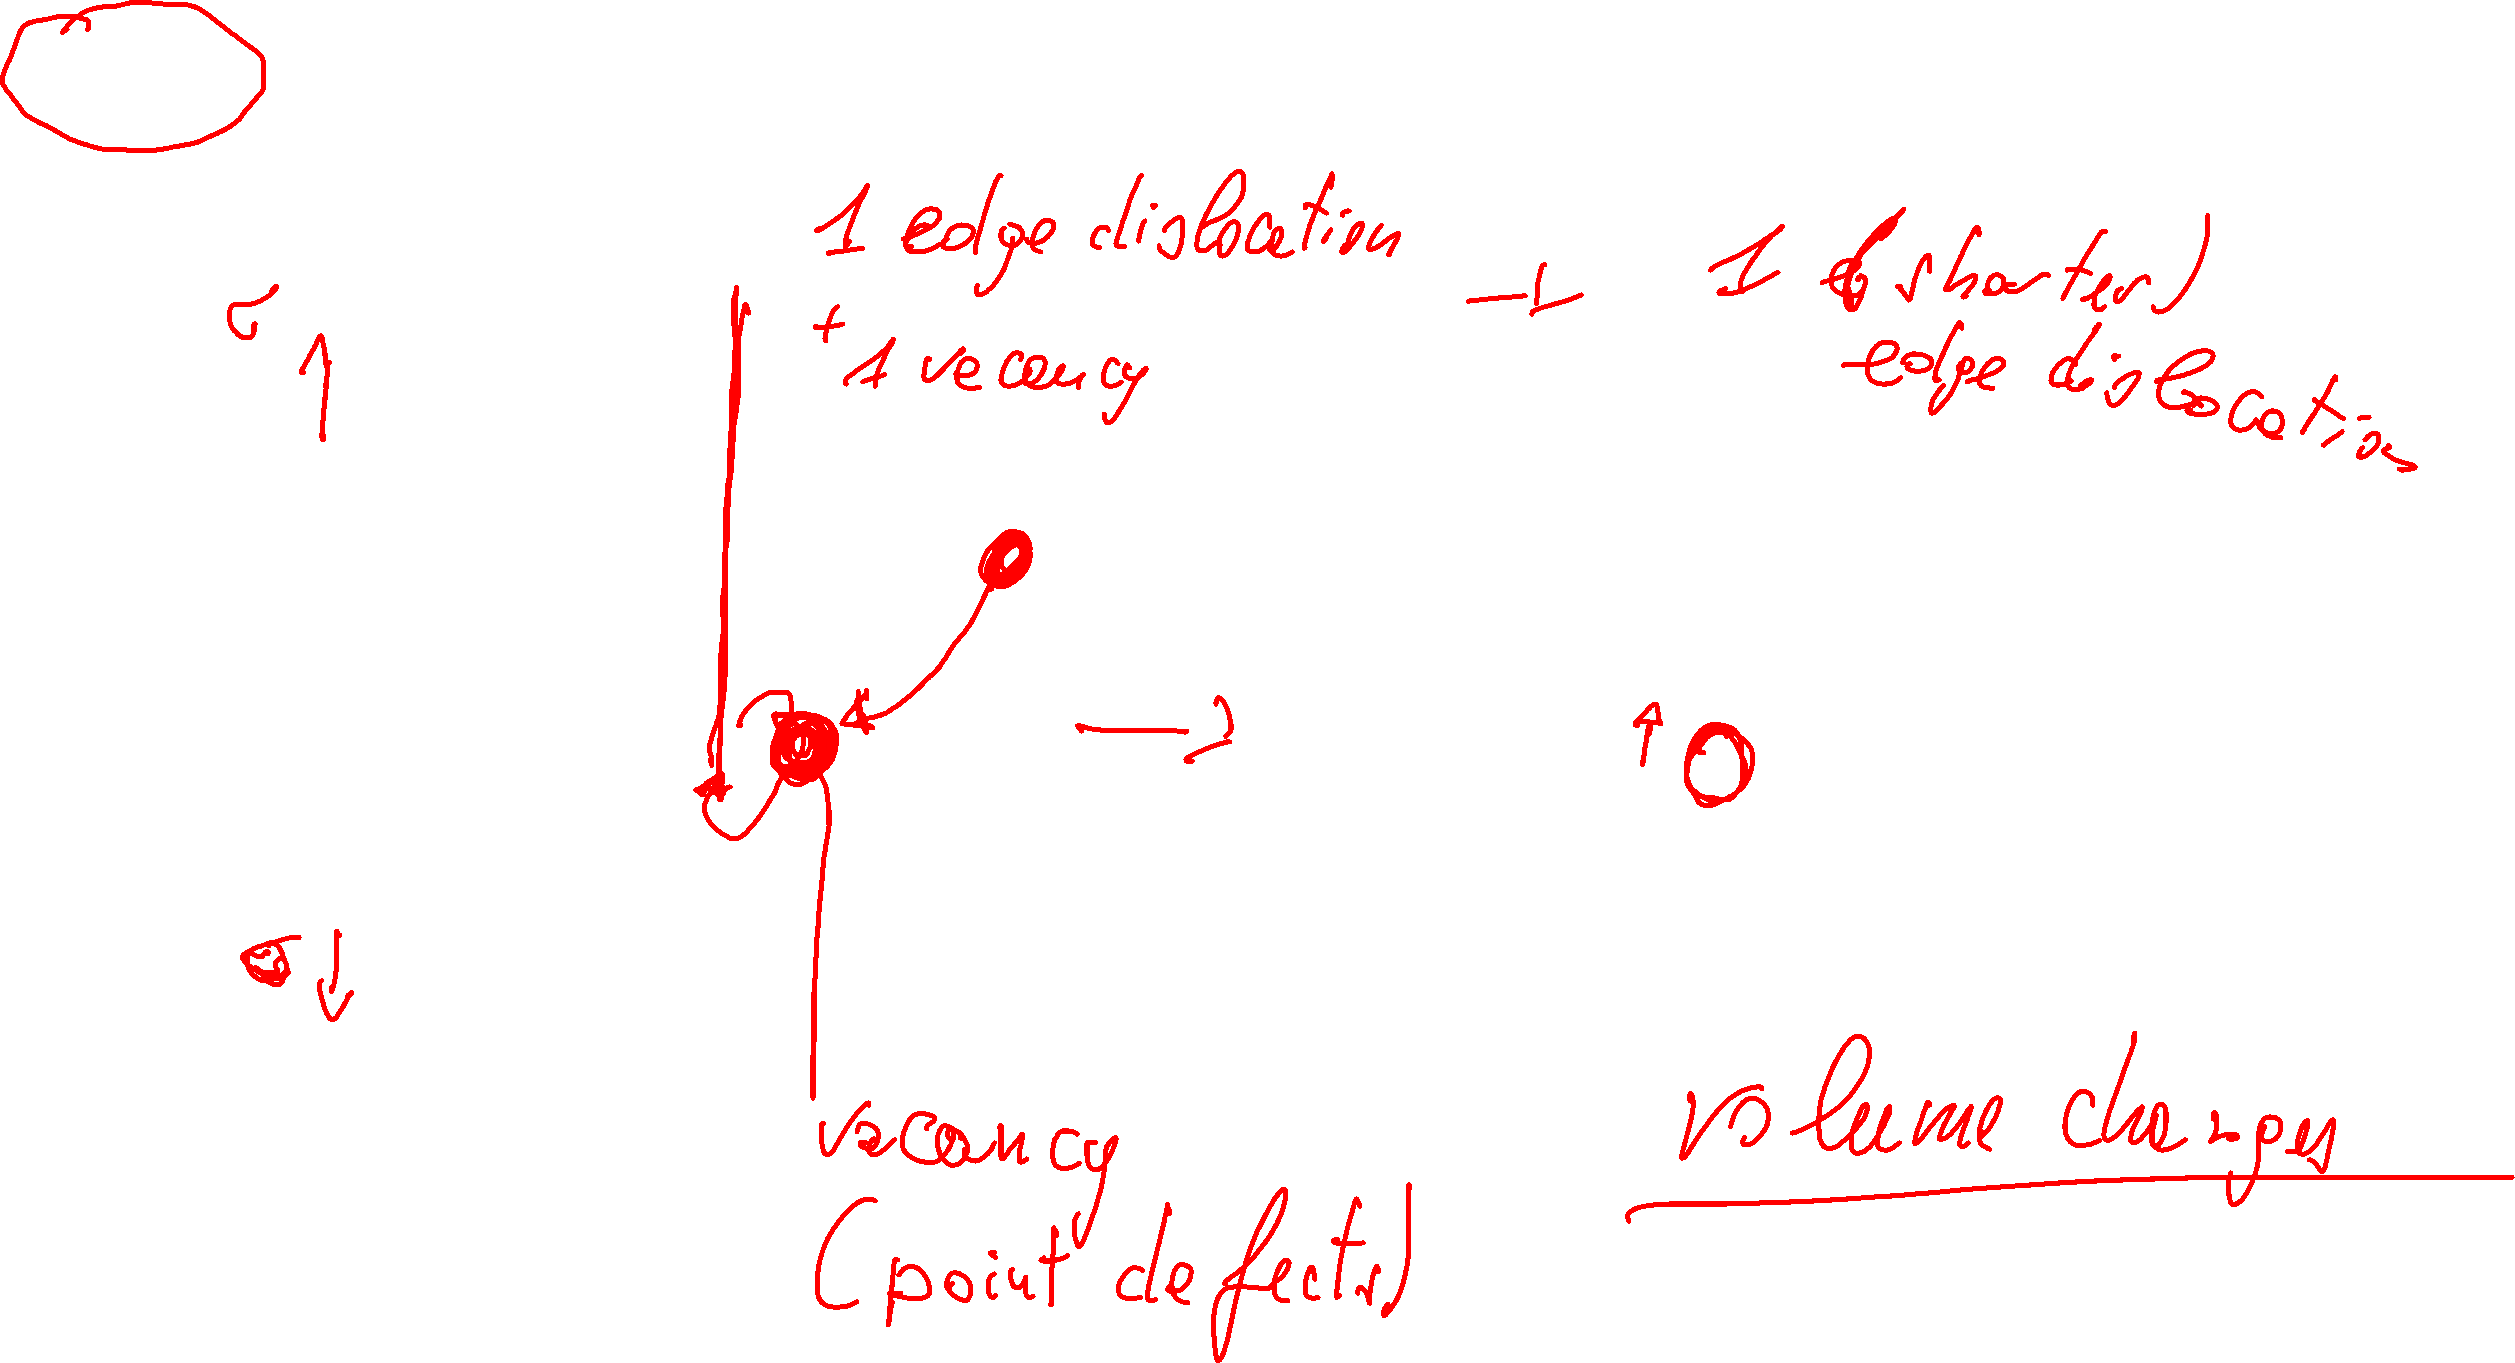 1 edge dislocation
+ 1 vacancy
1 (shorter)
edge dislocation
σ
σ
vacancy
(point defects)
volume changes